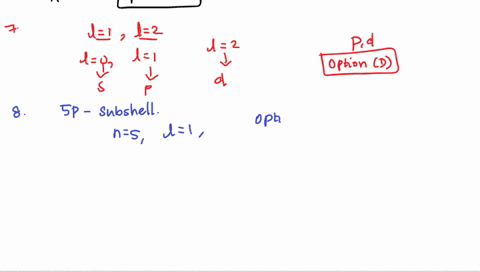 7 l=1, l=2
l=0, l=1 l=2
s p d
p,d
Option (D)
8. 5p - subshell.
n=5, l=1, opt